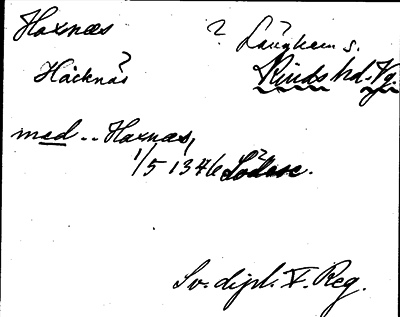 Haxnæs ? Långhem s.
Håcknäs Kinds hd. Vg.
med .. Haxnæs,
1/5 1346 Lödose.
Sv. dipl. V. Reg.